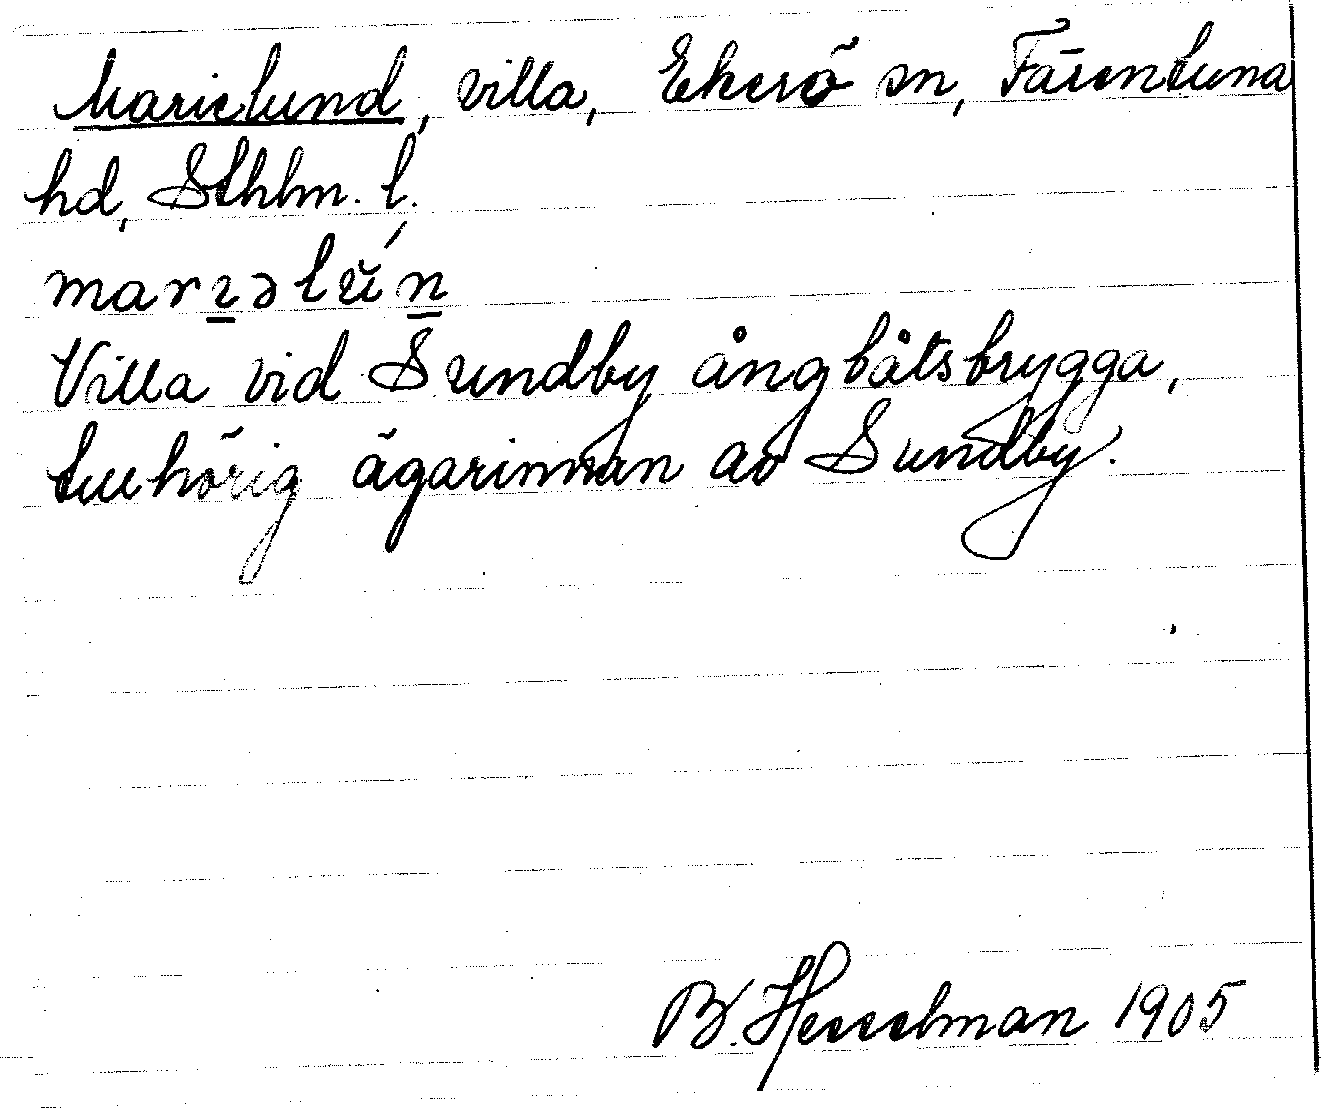 Marielund, villa, Ekerö sn, Färentuna
hd, Sthlm. l.
marɪ̱əlŭ́n̲
Villa vid Sundby ångbåtsbrygga,
tillhörig ägarinnan av Sundby.
B. Hesselman 1905